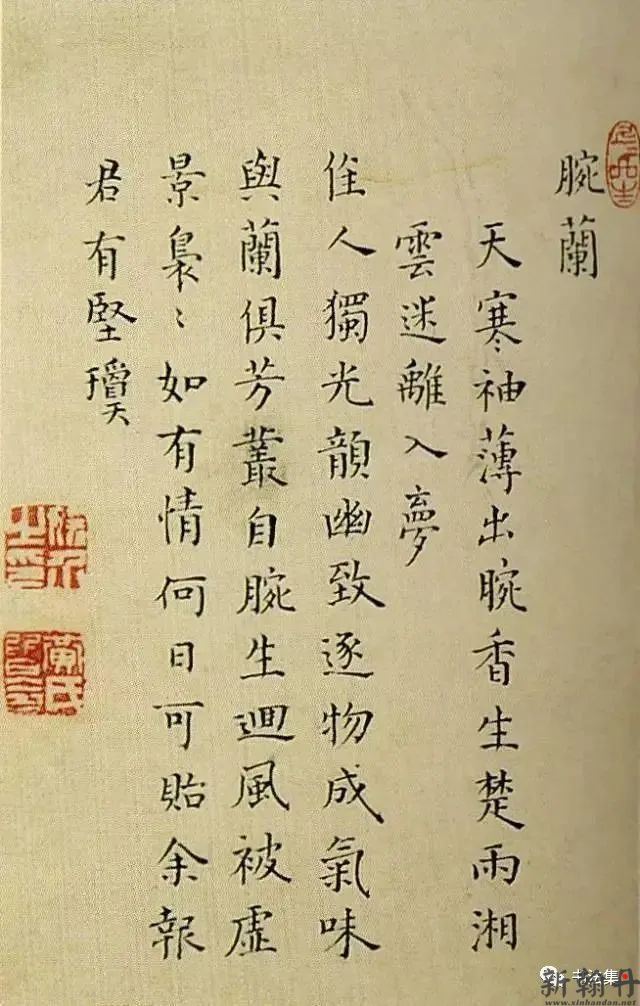 腕蘭
天寒袖薄出腕香生楚雨湘
雲迷離入夢
佳人獨光韻幽致逐物成氣味
與蘭俱芳叢自腕生迴風被虛
景裊〻如有情何日可貽余報
君有堅瓊
黄氏
新翰丹
www.xinhandan.net